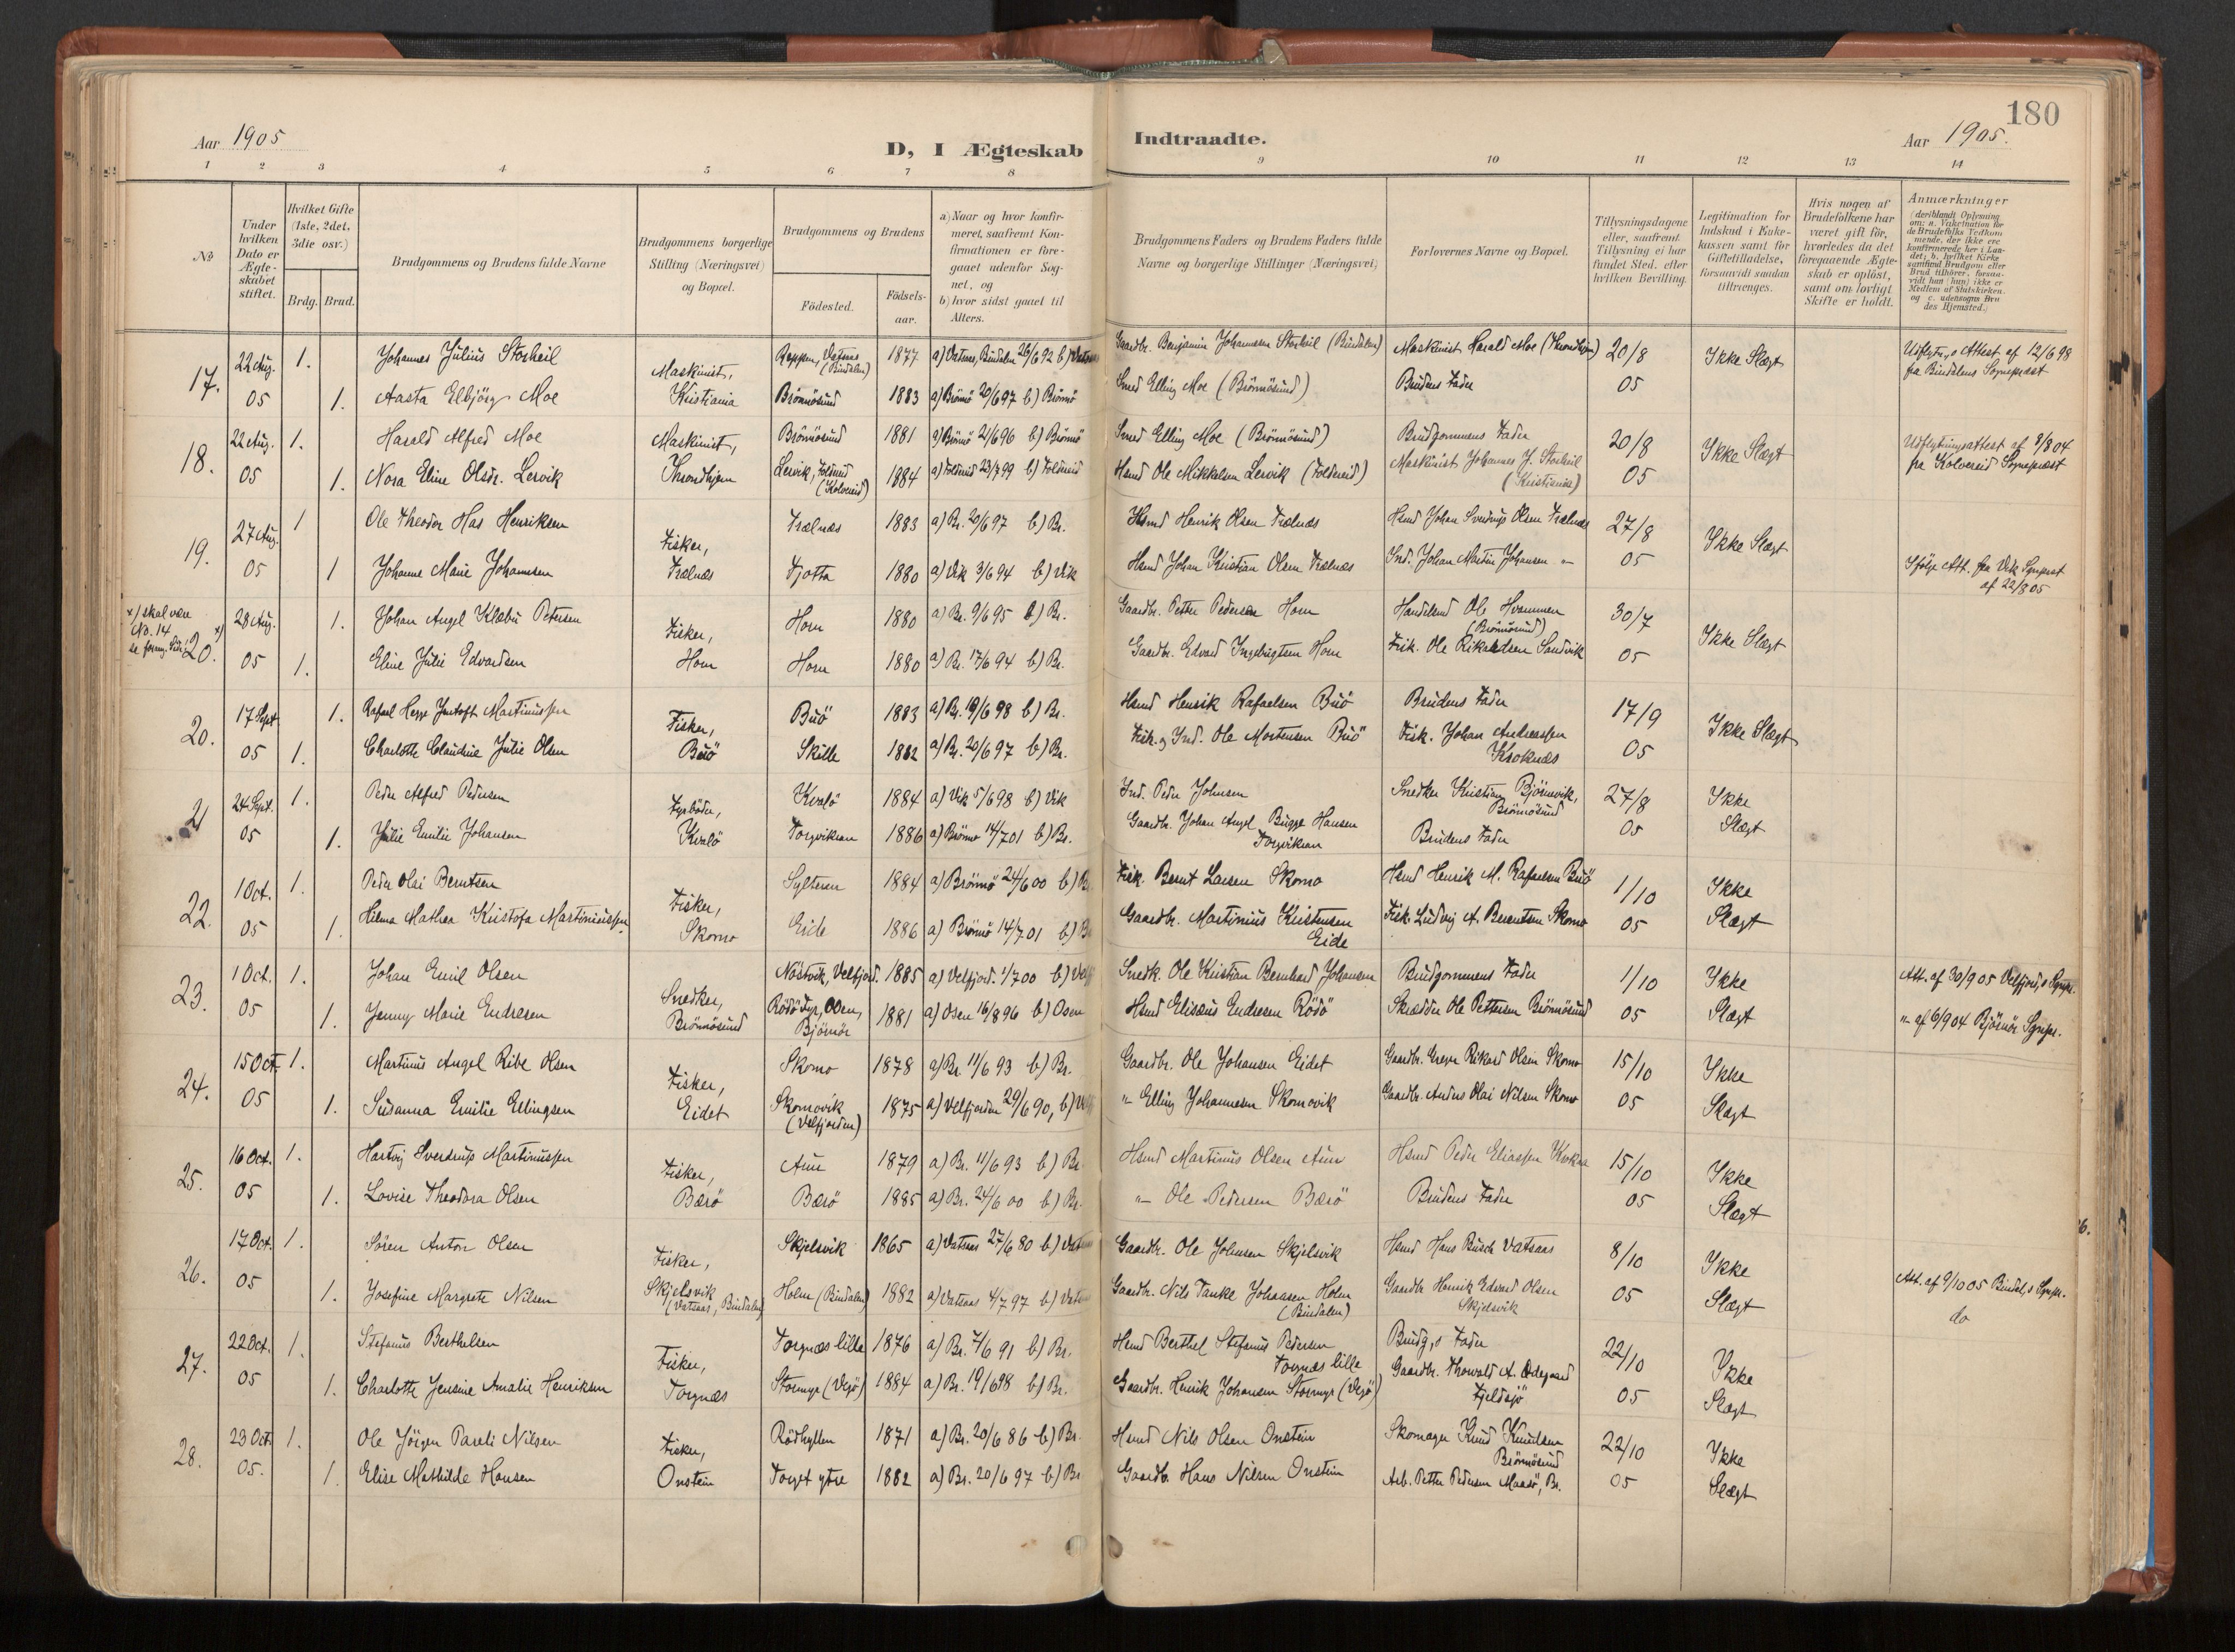 180
Aar 1905
D, I Ægteskab Indtraadte.
Aar 1905.
1 2 3 4 5 6 7 8 9 10 11 12 13 14
No
Under hvilken Dato er Ægteskabet stiftet.
Hvilket Gifte (1ste, 2det, 3die osv.)
Brdg. Brud.
Brudgommens og Brudens fulde Navne
Brudgommens borgerlige Stilling (Næringsvei) og Bopæl.
Brudgommens og Brudens
Födested.
Födselsaar.
a) Naar og hvor konfirmeret, saafremt Konfirmationen er foregaaet udenfor Sognet, og
b) hvor sidst gaaet til Alters.
Brudgommens Faders og Brudens Faders fulde Navne og borgerlige Stillinger (Næringsvei)
Forlovernes Navne og Bopæl.
Tillysningsdagene eller, saafremt Tillysning ei har fundet Sted, efter hvilken Bevilling.
Legitimation for Indskud i Enkekassen samt for Giftetilladelse, forsaavidt saadan tiltrænges.
Hvis nogen af Brudefolkene har været gift för, hvorledes da det foregaaende Ægteskab er oplöst, samt om lovligt Skifte er holdt.
Anmærkninger
(deriblandt Oplysning om: a. Vakcination for de Brudefolks Vedkommende, der ikke ere konfirmerede her i Landet; b. hvilket Kirkesamfund Brudgom eller Brud tilhører, forsaavidt han (hun) ikke er Medlem af Statskirken, og c. udensogns Brudes Hjemsted.)
17. 22 Aug. 05 1. Johannes Julius Storheil Maskinist, Kristiania Reppen, Vatsaas (Bindalen) 1877 a) Vatsaas, Bindalen 26/6 92 b) Vatsaas Gaardbr. Benjamin Johannesen Storheil (Bindalen) Maskinist Harald Moe (Throndhjem) 20/8 05 Ikke Slægt Udflytn.s Attest af 12/6 98 fra Bindalens Sognepræst
1. Aasta Elbjörg Moe Brönnösund 1883 a) Brönnö 20/6 97 b) Brönnö Smed Elling Moe (Brönnösund) Brudens Fader
18. 22 Aug. 05 1. Harald Alfred Moe Maskinist, Throndhjem Brönnösund 1881 a) Brönnö 21/6 96 b) Brönnö Smed Elling Moe (Brönnösund) Brudgommens Fader 20/8 05 Ikke Slægt Udflytningsattest af 8/8 04 fra Kolvereid Sognepræst
1. Nora Eline Olsdr. Lervik Lervik, Foldereid (Kolvereid) 1884 a) Foldereid 23/7 99 b) Foldereid Hsmd Ole Mikkelsen Lervik (Foldereid) Maskinist Johannes J. Storheil (Kristiania)
19. 27 Aug. 05 1 Ole Theodor Has Henriksen Fisker, Trælnæs Trælnæs 1883 a) Br. 20/6 97 b) Br. Hsmd Henrik Olsen Trælnæs Hsmd Johan Sverdrup Olsen Trælnæs 27/8 05 Ikke Slægt
1 Johanne Marie Johansen Tjotta 1880 a) Vik 3/6 94 b) Vik Hsmd Johan Kristian Olsen Trælnæs Ind. Johan Martin Johansen " Ifölge Att. fra Vik Sognepræst af 22/8 05
x) skal være No. 14 se forrige Side
20. x) 28 Aug. 05 1. Johan Angel Klæbu Petersen Fisker, Horn Horn 1880 a) Br. 9/6 95 b) Br. Gaardbr. Petter Pedersen Horn Handelsmd Ole Hvammen (Brönnösund) 30/7 05 Ikke Slægt
1. Eline Julie Edvardsen Horn 1880 a) Br. 17/6 94 b) Br. Gaardbr. Edvard Ingebrigtsen Horn Fisk. Ole Rikardsen Sandvik
20. 17 Sept. 05 1. Rafael Hegge Jentoft Martinussen Fisker, Buö Buö 1883 a) Br. 19/6 98 b) Br. Hsmd Henrik Rafaelsen Buö Brudens Fader 17/9 05 Ikke Slægt
1. Charlotte Claudine Julie Olsen Skille 1882 a) Br. 20/6 97 b) Br. Fisk. og Ind. Ole Mortensen Buö Fisk. Johan Andreassen Kroknæs
21 24 Sept. 05 1. Peder Alfred Pedersen Fyrböder, Kvalö Kvalö 1884 a) Vik 5/6 98 b) Vik Ind. Peder Johnsen Snedker Kristian Björnevik, Brönnösund 27/8 05 Ikke Slægt
1. Julie Emilie Johansen Torgvikren 1886 a) Brönnö 14/7 01 b) Br. Gaardbr. Johan Angel Bugge Hansen Torgvikren Brudens Fader
22. 1 Oct. 05 1. Peder Olai Berntsen Fisker, Skomo Sylteren 1884 a) Brönnö 24/6 00 b) Br. Fisk. Bernt Larsen Skomo Hsmd Henrik M. Rafaelsen Buö 1/10 05 Ikke Slægt
1. Hilma Mathea Kristofa Martinussen Eide 1886 a) Brönnö 14/7 01 b) Br Gaardbr. Martinus Kristensen Eide Fisk. Ludvig A. Berentsen Skomo
23. 1 Oct. 05 1. Johan Emil Olsen Snedker, Brönnösund Nöstvik, Velfjord. 1885 a) Velfjord. 1/7 00 b) Velfj Snedk. Ole Kristian Bernhard Johansen Brudgommens Fader 1/10 05 Ikke Slægt Att. af 30/9 05 Velfjord,s Sognepr.
1. Jenny Marie Endresen Rödö Fyr, Osen, Björnör 1881 a) Osen 16/8 96 b) Osen Hsmd Elisæus Endresen Rödö Skrædder Ole Pettersen Brönnösund " af 6/9 04 Björnör Sognepr.
24. 15 Oct. 05 1. Martinus Angel Ribe Olsen Fisker, Eidet Skomo 1878 a) Br. 11/6 93 b) Br. Gaardbr. Ole Johansen Eidet Gaardbr. Greger Rikard Olsen Skomo 15/10 05 Ikke Slægt
1. Susanna Emilie Ellingsen Skomovik (Velfjorden) 1875 a) Velfjorden 29/6 90, b) Velfj " Elling Johannesen Skomovik Gaardbr. Anders Olai Nilsen Skomo
25. 16 Oct. 05 1. Hartvig Sverdrup Martinussen Fisker, Bærö Aun 1879 a) Br. 11/6 93 b) Br. Hsmd Martinus Olsen Aun Hsmd Peder Eliassen 15/10 05 Ikke Slægt
1. Lovise Theodora Olsen Bærö 1885 a) Br. 24/6 00 b) Br. " Ole Pedersen Bærö Brudens Fader
26. 17 Oct. 05 1. Sören Anton Olsen Fisker, Skjelsvik (Vatsaas, Bindalen) Skjelsvik 1865 a) Vatsaas 27/6 80 b) Vatsaas Gaardbr. Ole Johnsen Skjelsvik Hsmd Hans Busch Vatsaas 8/10 05 Ikke Slægt Att. af 9/10 05 Bindal,s Sognepr.
1. Josefine Margrete Nilsen Holm (Bindalen) 1882 a) Vatsaas 4/7 97 b) Vatsaas Gaardbr. Nils Tanke Johansen Holm (Bindalen) Gaardbr Henrik Edvard Olsen Skjelsvik do
27. 22 Oct. 05 1. Stefanus Berthelsen Fisker, Torgnæs Torgnæs lille 1876 a) Br. 7/6 91 b) Br. Hsmd Berthel Stefanus Pedersen Torgnæs lille Brudg,s Fader 22/10 05 Ikke Slægt
1. Charlotte Jensine Amalie Henriksen Stormyr (Vejö) 1884 a) Br. 19/6 98 b) Br. Gaardbr. Henrik Johansen Stormyr (Vejö) Gaardbr. Thorvald A. Ödegaard Fjeldsjö
28. 23 Oct. 05. 1. Ole Jörgen Pareli Nilsen Fisker, Onstein Rödhyllen 1871 a) Br. 20/6 86 b) Br. Hsmd Nils Olsen Onstein Skomager Knud Knudsen Brönnösund 22/10 05 Ikke Slægt
1. Elise Mathilde Hansen Torget ytre 1882 a) Br. 20/6 97 b) Br Gaardb. Hans Nilsen Onstein Arb. Petter Pedersen Maasö, Br.